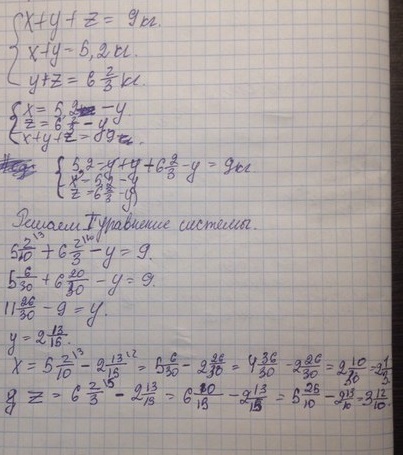 x+y+z = 9кг.
x+y=5,2кг.
y+z=6 2/3 кг.
x=5,2-y
z=6 2/3-y
x+y+z=9
5,2-y+y+6 2/3-y=9кг
x=5,2-y
z=6 2/3-y
Решаем I уравнение системы.
5 2/10 + 6 2/3 - y = 9.
5 6/30 + 6 20/30 - y = 9.
11 26/30 - 9 = y.
y = 2 13/15.
x = 5 2/10 - 2 13/15 = 5 6/30 - 2 26/30 = 4 36/30 - 2 26/30 = 2 10/30 = 2 1/3
z = 6 2/3 - 2 13/15 = 6 10/15 - 2 13/15 = 5 25/